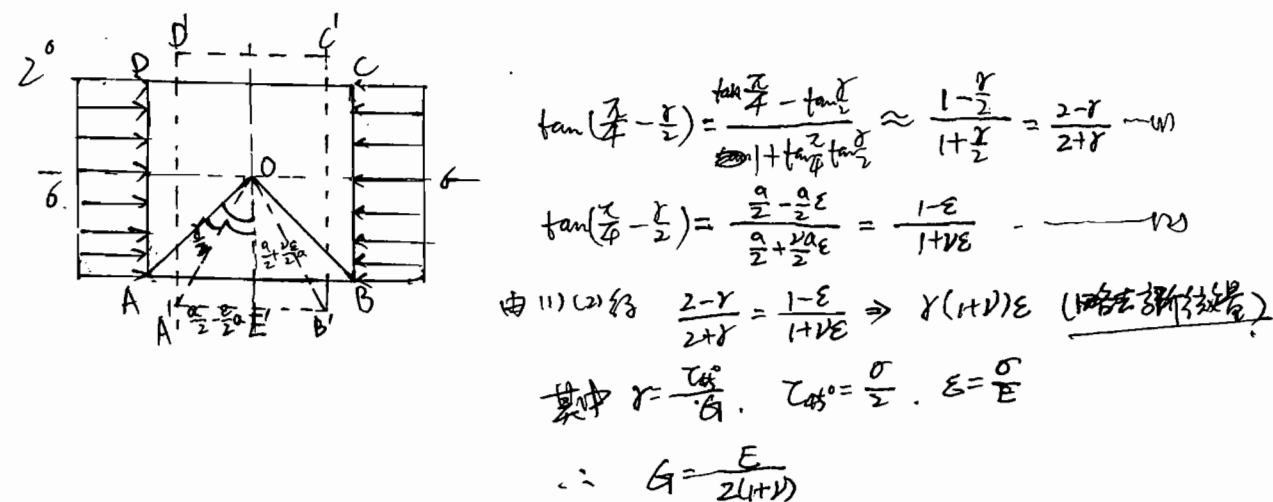 2°
D D' C' C
O
σ σ
γ/2
a/2+νε/2 a
A A' a/2-ε/2 a E' B' B
tan(π/4-γ/2)=(tanπ/4-tanγ/2)/(1+tanπ/4 tanγ/2)≈(1-γ/2)/(1+γ/2)=(2-γ)/(2+γ) —(1)
tan(π/4-γ/2)=(a/2-a/2 ε)/(a/2+νa/2 ε)=(1-ε)/(1+νε) ——(2)
由(1)(2)得 (2-γ)/(2+γ)=(1-ε)/(1+νε) ⇒ γ(1+ν)ε (略去高阶微量)
其中 γ=τ45°/G. τ45°=σ/2. ε=σ/E
∴ G=E/2(1+ν)